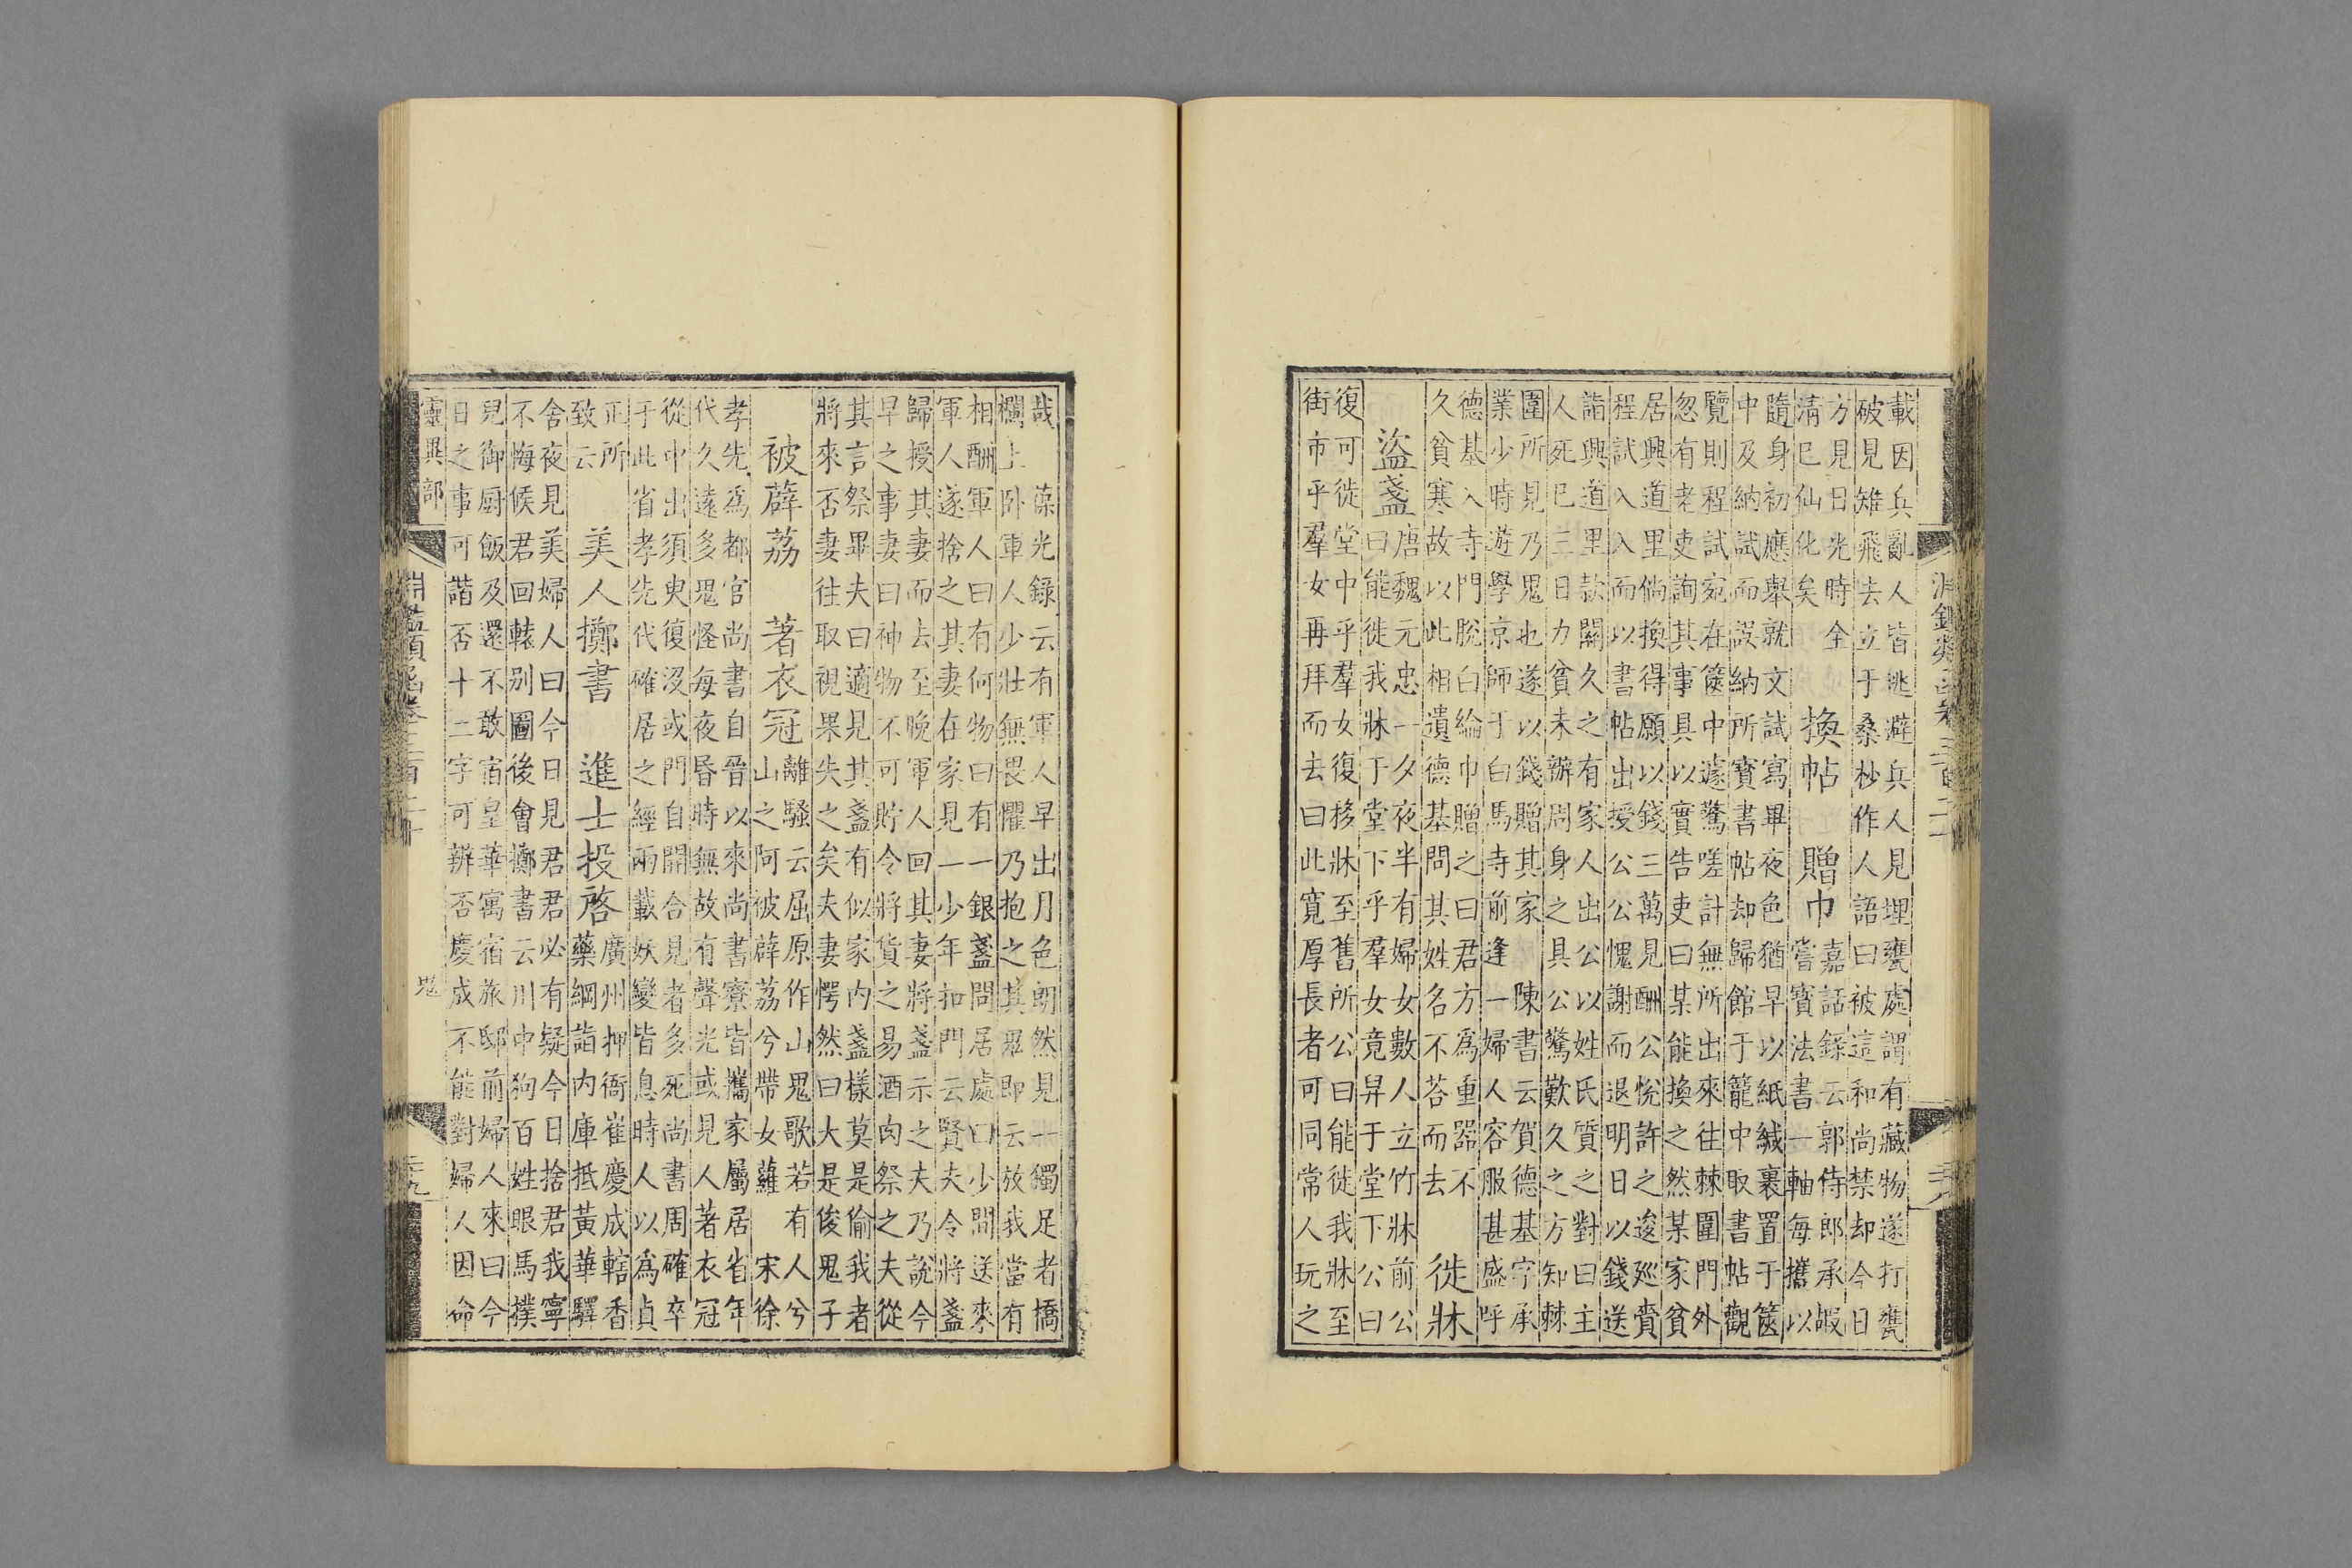 淵鑑類函卷三百二十
載因兵亂人皆逃避兵人見埋甕處謂有藏物遂打甕
破見雉飛去立于桑杪作人語曰被這和尚禁却今日
方見日光時全
清巳仙化矣
換帖　贈巾
嘉話錄云郭侍郎承嘏
嘗寶法書一軸每攜以
隨身初應舉就文試寫畢夜色猶早以紙緘裹置于篋
中及納試而誤納所寶書帖却歸館于籠中取書帖觀
覽則程試宛在篋中遽驚嗟計無所出來往棘圍門外
忽有老吏詢其事具以實告吏曰某能換之然某家貧
居興道里倘換得願以錢三萬見酬公悅許之逡廵賫
程試入入而以書帖出授公公愧謝而退明日以錢送
詣興道里款關久之有家人出公以姓氏質之對曰主
人死巳三日力貧未辦周身之具公驚歎久之方知棘
圍所見乃鬼也遂以錢贈其家　陳書云賀德基字承
業少時遊學京師于白馬寺前逢一婦人容服甚盛呼
德基入寺門脫白綸巾贈之曰君方為重噐不
久貧寒故以此相遺德基問其姓名不荅而去
徙牀
盜盞
唐魏元忠一夕夜半有婦女數人立竹牀前公
曰能徙我牀于堂下乎羣女竟舁于堂下公曰
復可徙堂中乎羣女復移牀至舊所公曰能徙我牀至
街市乎羣女再拜而去曰此寛厚長者可同常人玩之
哉　葆光錄云有軍人早出月色朗然見一獨足者橋
欄上卧軍人少壯無畏懼乃抱之其鬼即云放我當有
相酬軍人曰有何物曰有一銀盞問居處曰少問送來
軍人遂捨之其妻在家見一少年扣門云賢夫令將盞
歸授其妻而去至晚軍人回其妻將盞示之夫乃說今
早之事妻曰神物不可貯令將貨之易酒肉祭之夫從
其言祭畢夫曰適見其盞有似家内盞樣莫是偷我者
將來否妻往取視果失之矣夫妻愕然曰大是俊鬼子
被薜荔　著衣冠
離騷云屈原作山鬼歌若有人兮
山之阿被薜荔兮帶女蘿　宋徐
孝先為都官尚書自晉以來尚書寮皆攜家屬居省年
代久遠多鬼怪每夜昏時無故有聲光或見人著衣冠
從中出須臾復没或門自開合見者多死尚書周確卒
于此省孝先代確居之經兩載妖變皆息時人以為貞
正所
致云
美人擲書　進士投啓
廣州押衙崔慶成轄香
藥綱詣内庫抵黃華驛
舍夜見美婦人曰今日見君君必有疑今日捨君我寧
不悔候君回轅别圖後會擲書云川中狗百姓眼馬撲
兒御厨飯及還不敢宿皇華寓宿旅邸前婦人來曰今
日之事可諧否十二字可辨否慶成不能對婦人因命
靈異部
鬼
淵鑑類函卷三百二十
三九